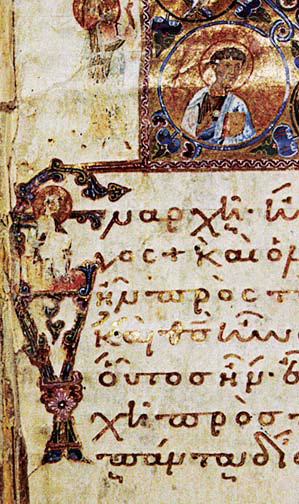 Ἐν ἀρχῆ· ἦν
γος + καὶ ὁ
ἦν πρὸς τ
καὶ θς ἦν
οὗτος ἦν· ἐ
χῆ πρὸς τ
πάντα δι